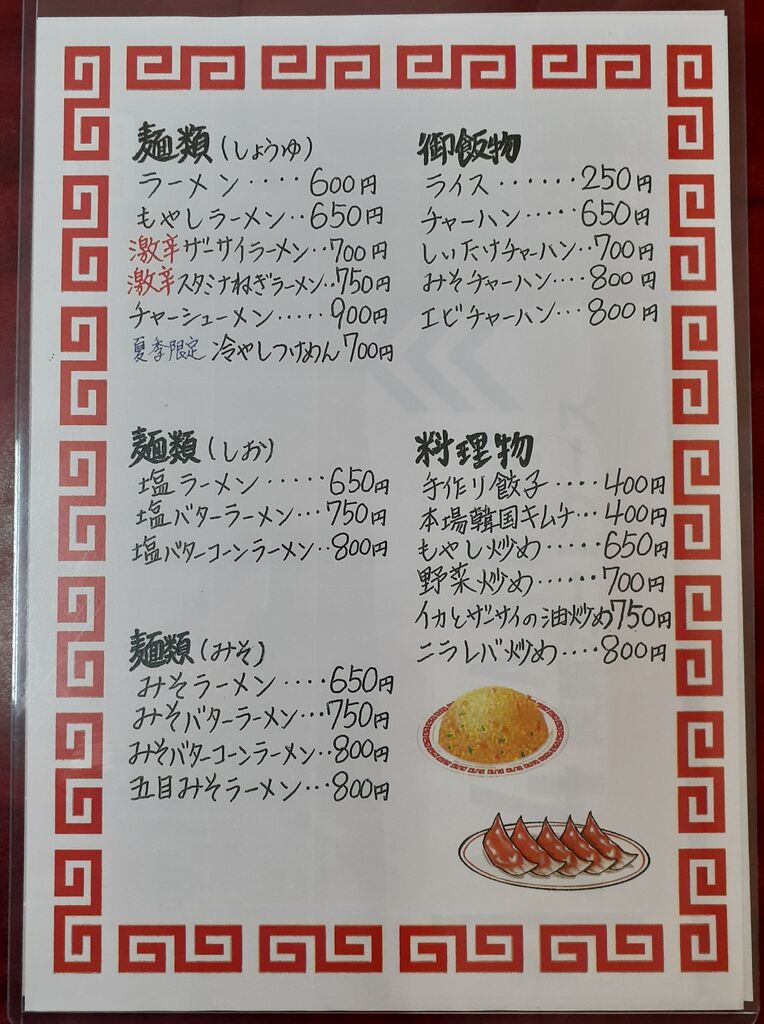 麺類(しょうゆ)
ラーメン････600円
もやしラーメン‥650円
激辛ザーサイラーメン‥700円
激辛スタミナねぎラーメン‥750円
チャーシューメン･････900円
夏季限定 冷やしつけめん700円
麺類(しお)
塩ラーメン･････650円
塩バターラーメン････750円
塩バターコーンラーメン‥800円
麺類(みそ)
みそラーメン････650円
みそバターラーメン･･･750円
みそバターコーンラーメン‥800円
五目みそラーメン･･･800円
御飯物
ライス･･････250円
チャーハン･････650円
しいたけチャーハン‥700円
みそチャーハン････800円
エビチャーハン･･･800円
料理物
手作り餃子････400円
本場韓国キムチ･･･400円
もやし炒め･････650円
野菜炒め･･････700円
イカとザーサイの油炒め750円
ニラレバ炒め････800円